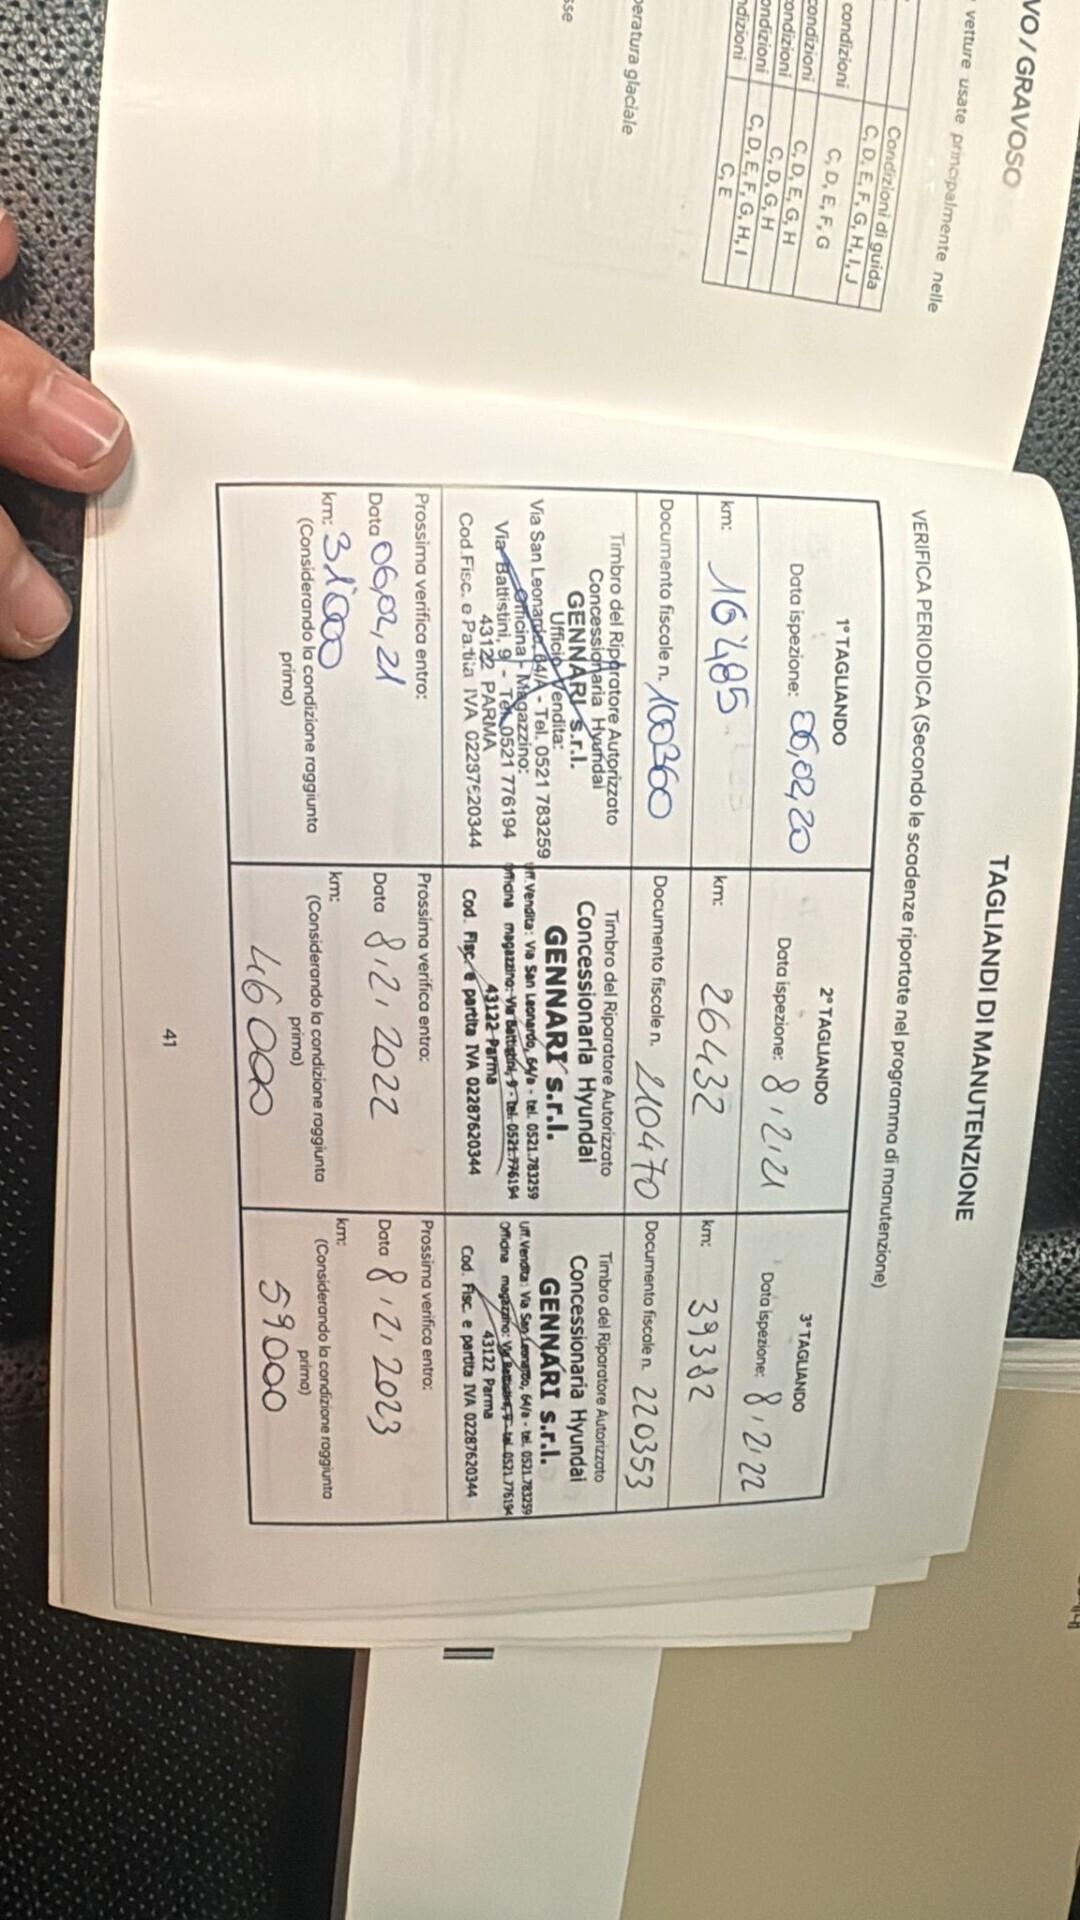 VO / GRAVOSO
vetture usate principalmente nelle
Condizioni di guida
C, D, E, F, G, H, I, J
condizioni C, D, E, F, G
condizioni C, D, E, G, H
ondizioni C, D, G, H
ondizioni C, D, E, F, G, H, I
ndizioni C, E
peratura glaciale
sse
TAGLIANDI DI MANUTENZIONE
VERIFICA PERIODICA (Secondo le scadenze riportate nel programma di manutenzione)
1° TAGLIANDO
Data ispezione: 06,02,20
km: 16485
Documento fiscale n. 100360
Timbro del Riparatore Autorizzato
Concessionaria Hyundai
GENNARI s.r.l.
Ufficio Vendita:
Via San Leonardo, 64/A - Tel. 0521 783259
Officina - Magazzino:
Via Battistini, 9 - Tel. 0521 776194
43122 PARMA
Cod.Fisc. e Partita IVA 02237620344
Prossima verifica entro:
Data 06,02,21
km: 31'000
(Considerando la condizione raggiunta
prima)
2° TAGLIANDO
Data ispezione: 8,2,21
km: 26432
Documento fiscale n. 210470
Timbro del Riparatore Autorizzato
Concessionaria Hyundai
GENNARI s.r.l.
Uff.Vendita: Via San Leonardo, 64/a - tel. 0521.783259
Officina magazzino: Via Battistini, 9 - tel. 0521.776194
43122 Parma
Cod. Fisc. e partita IVA 02287620344
Prossima verifica entro:
Data 8,2,2022
km:
(Considerando la condizione raggiunta
prima)
46000
3° TAGLIANDO
Data ispezione: 8,2,22
km: 39382
Documento fiscale n. 220353
Timbro del Riparatore Autorizzato
Concessionaria Hyundai
GENNARI s.r.l.
Uff.Vendita: Via San Leonardo, 64/a - tel. 0521.783259
Officina magazzino: Via Battistini, 9 - tel. 0521.776194
43122 Parma
Cod. Fisc. e partita IVA 02287620344
Prossima verifica entro:
Data 8,2,2023
km:
(Considerando la condizione raggiunta
prima)
59000
41